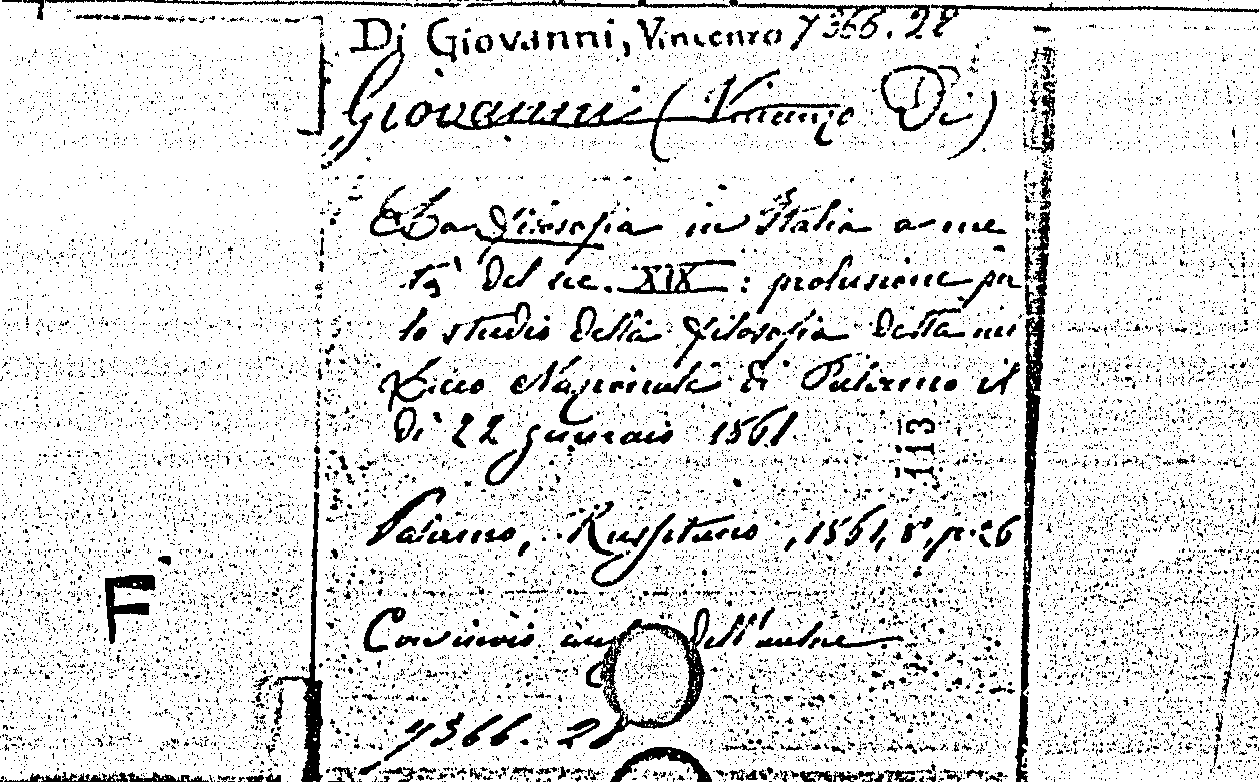 Di Giovanni, Vincenzo 7366.28
Giovanni (Vincenzo Di)
La filosofia in Italia a me
tà del sec. XIX : prolusione per
lo studio della filosofia detta nel
Liceo Nazionale di Palermo il
dì 22 gennaio 1861
113
Palermo, Ruffitano, 1861, 8°, p. 26
F
dell'autore
7366. 28